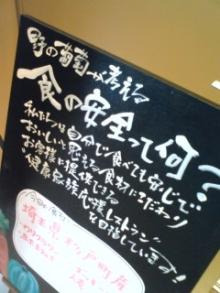 野の葡萄が考える
食の安全って何?
私たちは自分で食べても安心で
おいしいと思える食材にこだわり
お客様に提供できる
健康家族応援レストラン
を目指しています!
埼玉県 杉戸町産